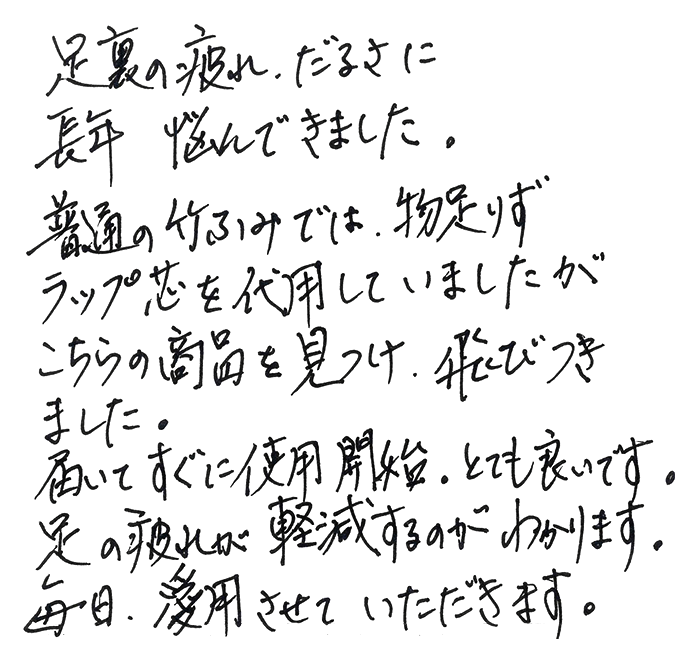 足裏の疲れ、だるさに
長年 悩んできました。
普通の竹ふみでは、物足りず
ラップ芯を代用していましたが
こちらの商品を見つけ、飛びつき
ました。
届いてすぐに使用開始。とても良いです。
足の疲れが軽減するのがわかります。
毎日、愛用させていただきます。